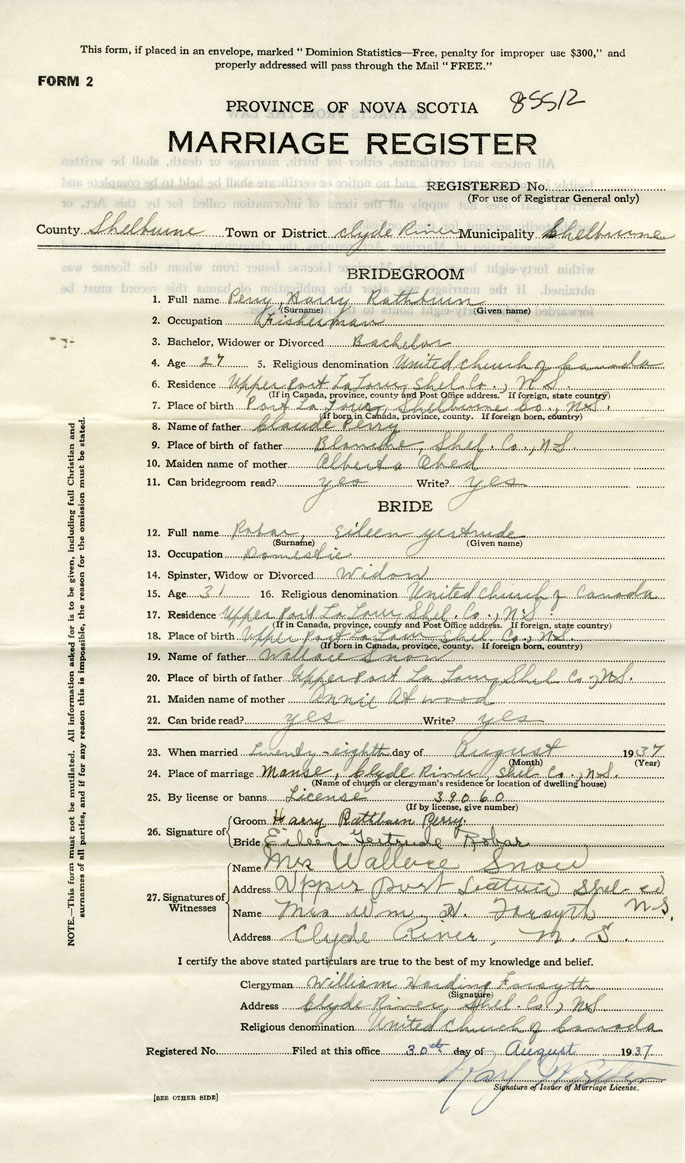 This form, if placed in an envelope, marked "Dominion Statistics—Free, penalty for improper use $300," and
properly addressed will pass through the Mail "FREE."
FORM 2
PROVINCE OF NOVA SCOTIA 85512
MARRIAGE REGISTER
REGISTERED No.
(For use of Registrar General only)
County Shelburne Town or District Clyde River Municipality Shelburne
BRIDEGROOM
1. Full name Perry, Harry Rathburn
(Surname) (Given name)
2. Occupation Fisherman
3. Bachelor, Widower or Divorced Bachelor
4. Age 27 5. Religious denomination United Church of Canada
6. Residence Upper Port La Tour, Shel. Co., N.S.
(If in Canada, province, county and Post Office address. If foreign, state country)
7. Place of birth Port La Tour, Shelburne Co., N.S.
(If born in Canada, province, county. If foreign born, country)
8. Name of father Claude Perry
9. Place of birth of father Blanche, Shel. Co., N.S.
10. Maiden name of mother Alberta Obed
11. Can bridegroom read? yes Write? yes
BRIDE
12. Full name Robar, Eileen Gertrude
(Surname) (Given name)
13. Occupation Domestic
14. Spinster, Widow or Divorced Widow
15. Age 31 16. Religious denomination United Church of Canada
17. Residence Upper Port La Tour Shel. Co., N.S.
(If in Canada, province, county and Post Office address. If foreign, state country)
18. Place of birth Upper Port La Tour Shel. Co., N.S.
(If born in Canada, province, county. If foreign born, country)
19. Name of father Wallace Snow
20. Place of birth of father Upper Port La Tour, Shel. Co., N.S.
21. Maiden name of mother Atwood
22. Can bride read? yes Write? yes
23. When married twenty-eighth day of August 1937
(Month) (Year)
24. Place of marriage Manse, Clyde River, Shel. Co., N.S.
(Name of church or clergyman's residence or location of dwelling house)
25. By license or banns License 39060
(If by license, give number)
26. Signature of
Groom Harry Rathburn Perry.
Bride Eileen Gertrude Robar
27. Signatures of Witnesses
Name Mrs Wallace Snow
Address Upper Port Latour Shel-co N.S.
Name Mrs Wm. H. Forsyth
Address Clyde River, N.S.
I certify the above stated particulars are true to the best of my knowledge and belief.
Clergyman William Harding Forsyth
(Signature)
Address Clyde River, Shel. Co., N.S.
Religious denomination United Church of Canada
Registered No. Filed at this office 30th day of August 1937
Signature of Issuer of Marriage License.
[SEE OTHER SIDE]
NOTE.—This form must not be mutilated. All information asked for is to be given, including full Christian and
surnames of all parties, and if for any reason this is impossible, the reason for the omission must be stated.